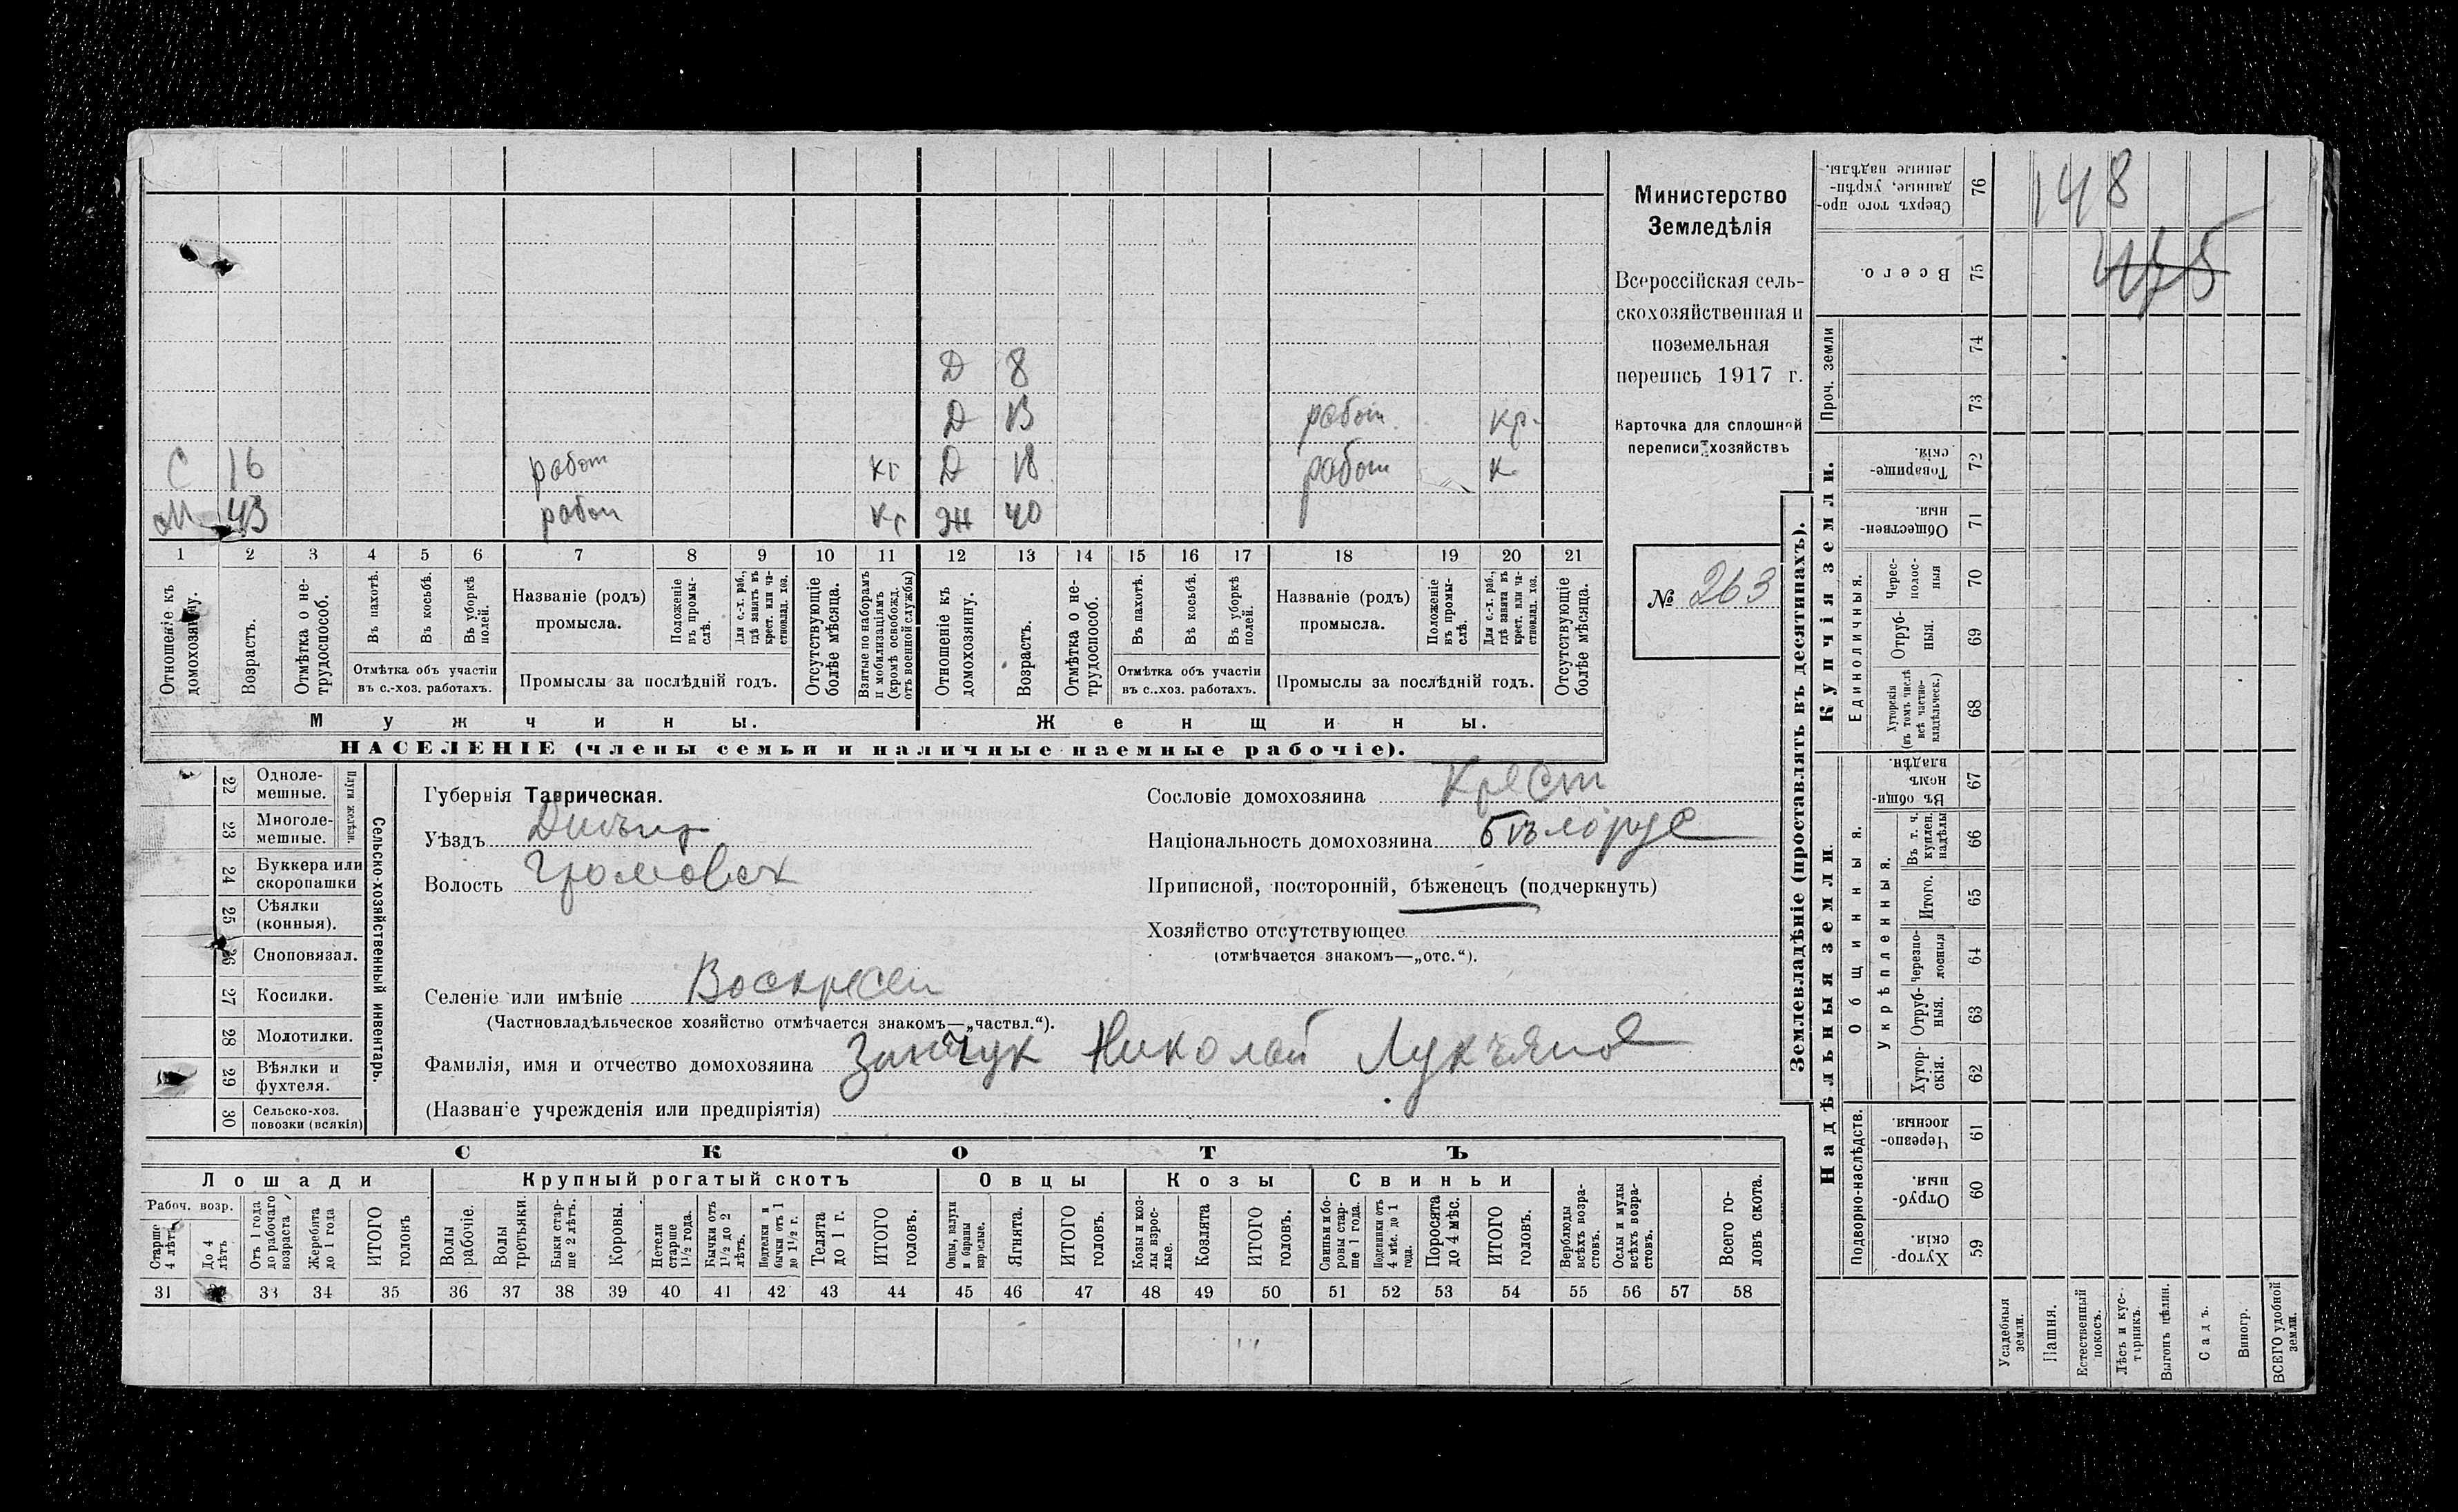 148
475
Министерство
Земледѣлія
Всероссійская сель-
скохозяйственная и
поземельная
перепись 1917 г.
Карточка для сплошной
переписи хозяйствъ
№ 263
Д 8
Д 13 работ. кр.
С 16 работ кг Д 18 работ к
М 43 работ кг Ж 40
1 2 3 4 5 6 7 8 9 10 11 12 13 14 15 16 17 18 19 20 21
Отношеніе къ домохозяину.
Возрастъ.
Отмѣтка о не-трудоспособ.
Въ пахотѣ.
Въ косьбѣ.
Въ уборкѣ полей.
Отмѣтка объ участіи
въ с.-хоз. работахъ.
Названіе (родъ)
промысла.
Положеніе въ промы-слѣ.
Для с.-х. раб., гдѣ занятъ въ крест. или ча-стновлад. хоз.
Промыслы за послѣдній годъ.
Отсутствующіе болѣе мѣсяца.
Взятые по наборамъ и мобилизаціямъ (кромѣ освобожд. отъ военной службы)
Отношеніе къ домохозяину.
Возрастъ.
Отмѣтка о не-трудоспособ.
Въ пахотѣ.
Въ косьбѣ.
Въ уборкѣ полей.
Отмѣтка объ участіи
въ с..хоз. работахъ.
Названіе (родъ)
промысла.
Положеніе въ промы-слѣ.
Для с.-х. раб., гдѣ занята въ крест. или ча-стновлад. хоз.
Промыслы за послѣдній годъ.
Отсутствующіе болѣе мѣсяца.
Мужчины.
Женщины.
НАСЕЛЕНІЕ (члены семьи и наличные наемные рабочіе).
22 Одноле-мешные.
23 Многоле-мешные.
Плуги желѣзн.
24 Буккера или скоропашки
25 Сѣялки (конныя).
26 Сноповязал.
27 Косилки.
28 Молотилки.
29 Вѣялки и фухтеля.
30 Сельско-хоз. повозки (всякія)
Сельско-хозяйственный инвентарь.
Губернія Таврическая.
Уѣздъ
Волость Громовск
Селеніе или имѣніе Воскресен
(Частновладѣльческое хозяйство отмѣчается знакомъ—„частвл.“).
Фамилія, имя и отчество домохозяина Николай Лукъянов
(Названіе учрежденія или предпріятія)
Сословіе домохозяина Крест
Національность домохозяина бѣлорус
Приписной, посторонній, бѣженецъ (подчеркнуть)
Хозяйство отсутствующее
(отмѣчается знакомъ—„отс.“).
СКОТЪ
Лошади
Крупный рогатый скотъ
Овцы
Козы
Свиньи
Рабоч. возр.
Старше 4 лѣтъ
До 4 лѣтъ
Отъ 1 года до рабочаго возраста
Жеребята до 1 года
ИТОГО головъ
Волы рабочіе.
Волы третьяки.
Быки стар-ше 2 лѣтъ.
Коровы.
Нетели старше 1½ года.
Бычки отъ 1½ до 2 лѣтъ.
Подтелки и бычки отъ 1 до 1½ г.
Телята до 1 г.
ИТОГО головъ.
Овцы, валухи и бараны взрослые.
Ягнята.
ИТОГО головъ.
Козы и коз-лы взрос-лые.
Козлята
ИТОГО головъ.
Свиньи и бо-ровы стар-ше 1 года.
Подсвинки отъ 4 мѣс. до 1 года.
Поросята до 4 мѣс.
ИТОГО головъ.
Верблюды всѣхъ возра-стовъ.
Ослы и мулы всѣхъ возра-стовъ.
Всего го-ловъ скота.
31 33 34 35 36 37 38 39 40 41 42 43 44 45 46 47 48 49 50 51 52 53 54 55 56 57 58
Землевладѣніе (проставлять въ десятинахъ).
Купчія земли.
Надѣльныя земли.
Сверхъ того про-данные, укрѣп-ленные надѣлы. 76
Всего. 75
Проч. земли 74
73
Товарище-скія. 72
Обществен-ныя. 71
Единоличныя.
Черес-полос-ныя 70
Отруб-ныя. 69
Хуторскія (въ томъ числѣ всѣ частно-владѣльческ.) 68
Общинныя.
Въ общи-номъ владѣн. 67
Укрѣпленныя.
Въ т. ч. куплен. надѣлы 66
Итого. 65
Черезпо-лосныя 64
Отруб-ныя. 63
Хутор-скія. 62
Подворно-наслѣдств.
Черезпо-лосныя. 61
Отруб-ныя. 60
Хутор-скія. 59
Усадебныя земли.
Пашня.
Естественный покосъ.
Лѣсъ и кус-тарникъ.
Выгонъ цѣлин.
Садъ.
Виногр.
ВСЕГО удобной земли.